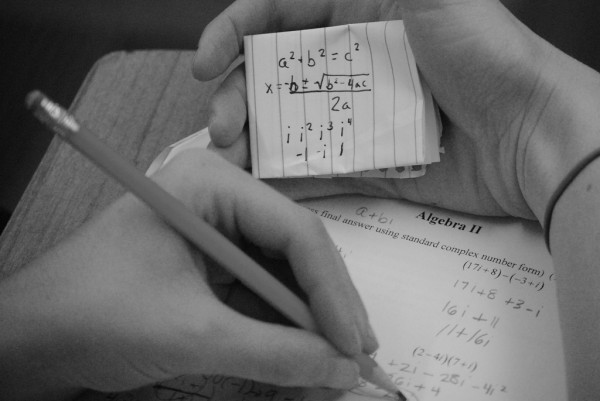 a² + b² = c²
x = -b ± √b²-4ac
2a
i i² i³ i⁴
-1 -i 1
a+bi
Algebra II
final answer using standard complex number form)
(17i+8)-(-3+i)
17i+8 +3-i
16i + 11
11+16i
(2-4i)(7+i)
+2i - 28i - 4i²
+ 4